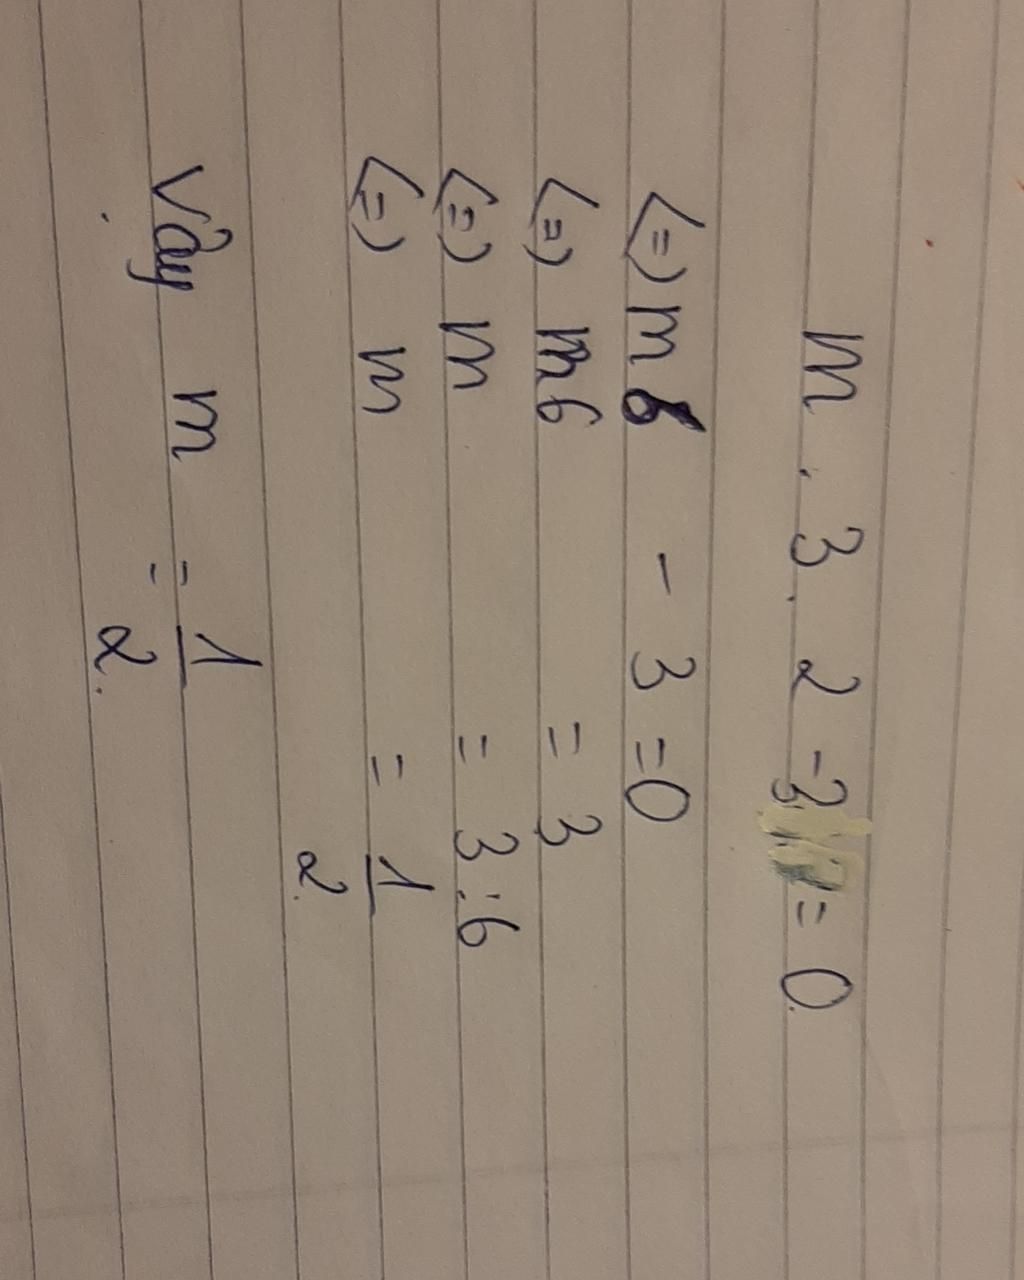 m . 3 . 2 - 3 = 0.
<=> m 6 - 3 = 0
<=> m 6 = 3
<=> m = 3 : 6
<=> m = 1/2.
Vậy m = 1/2.